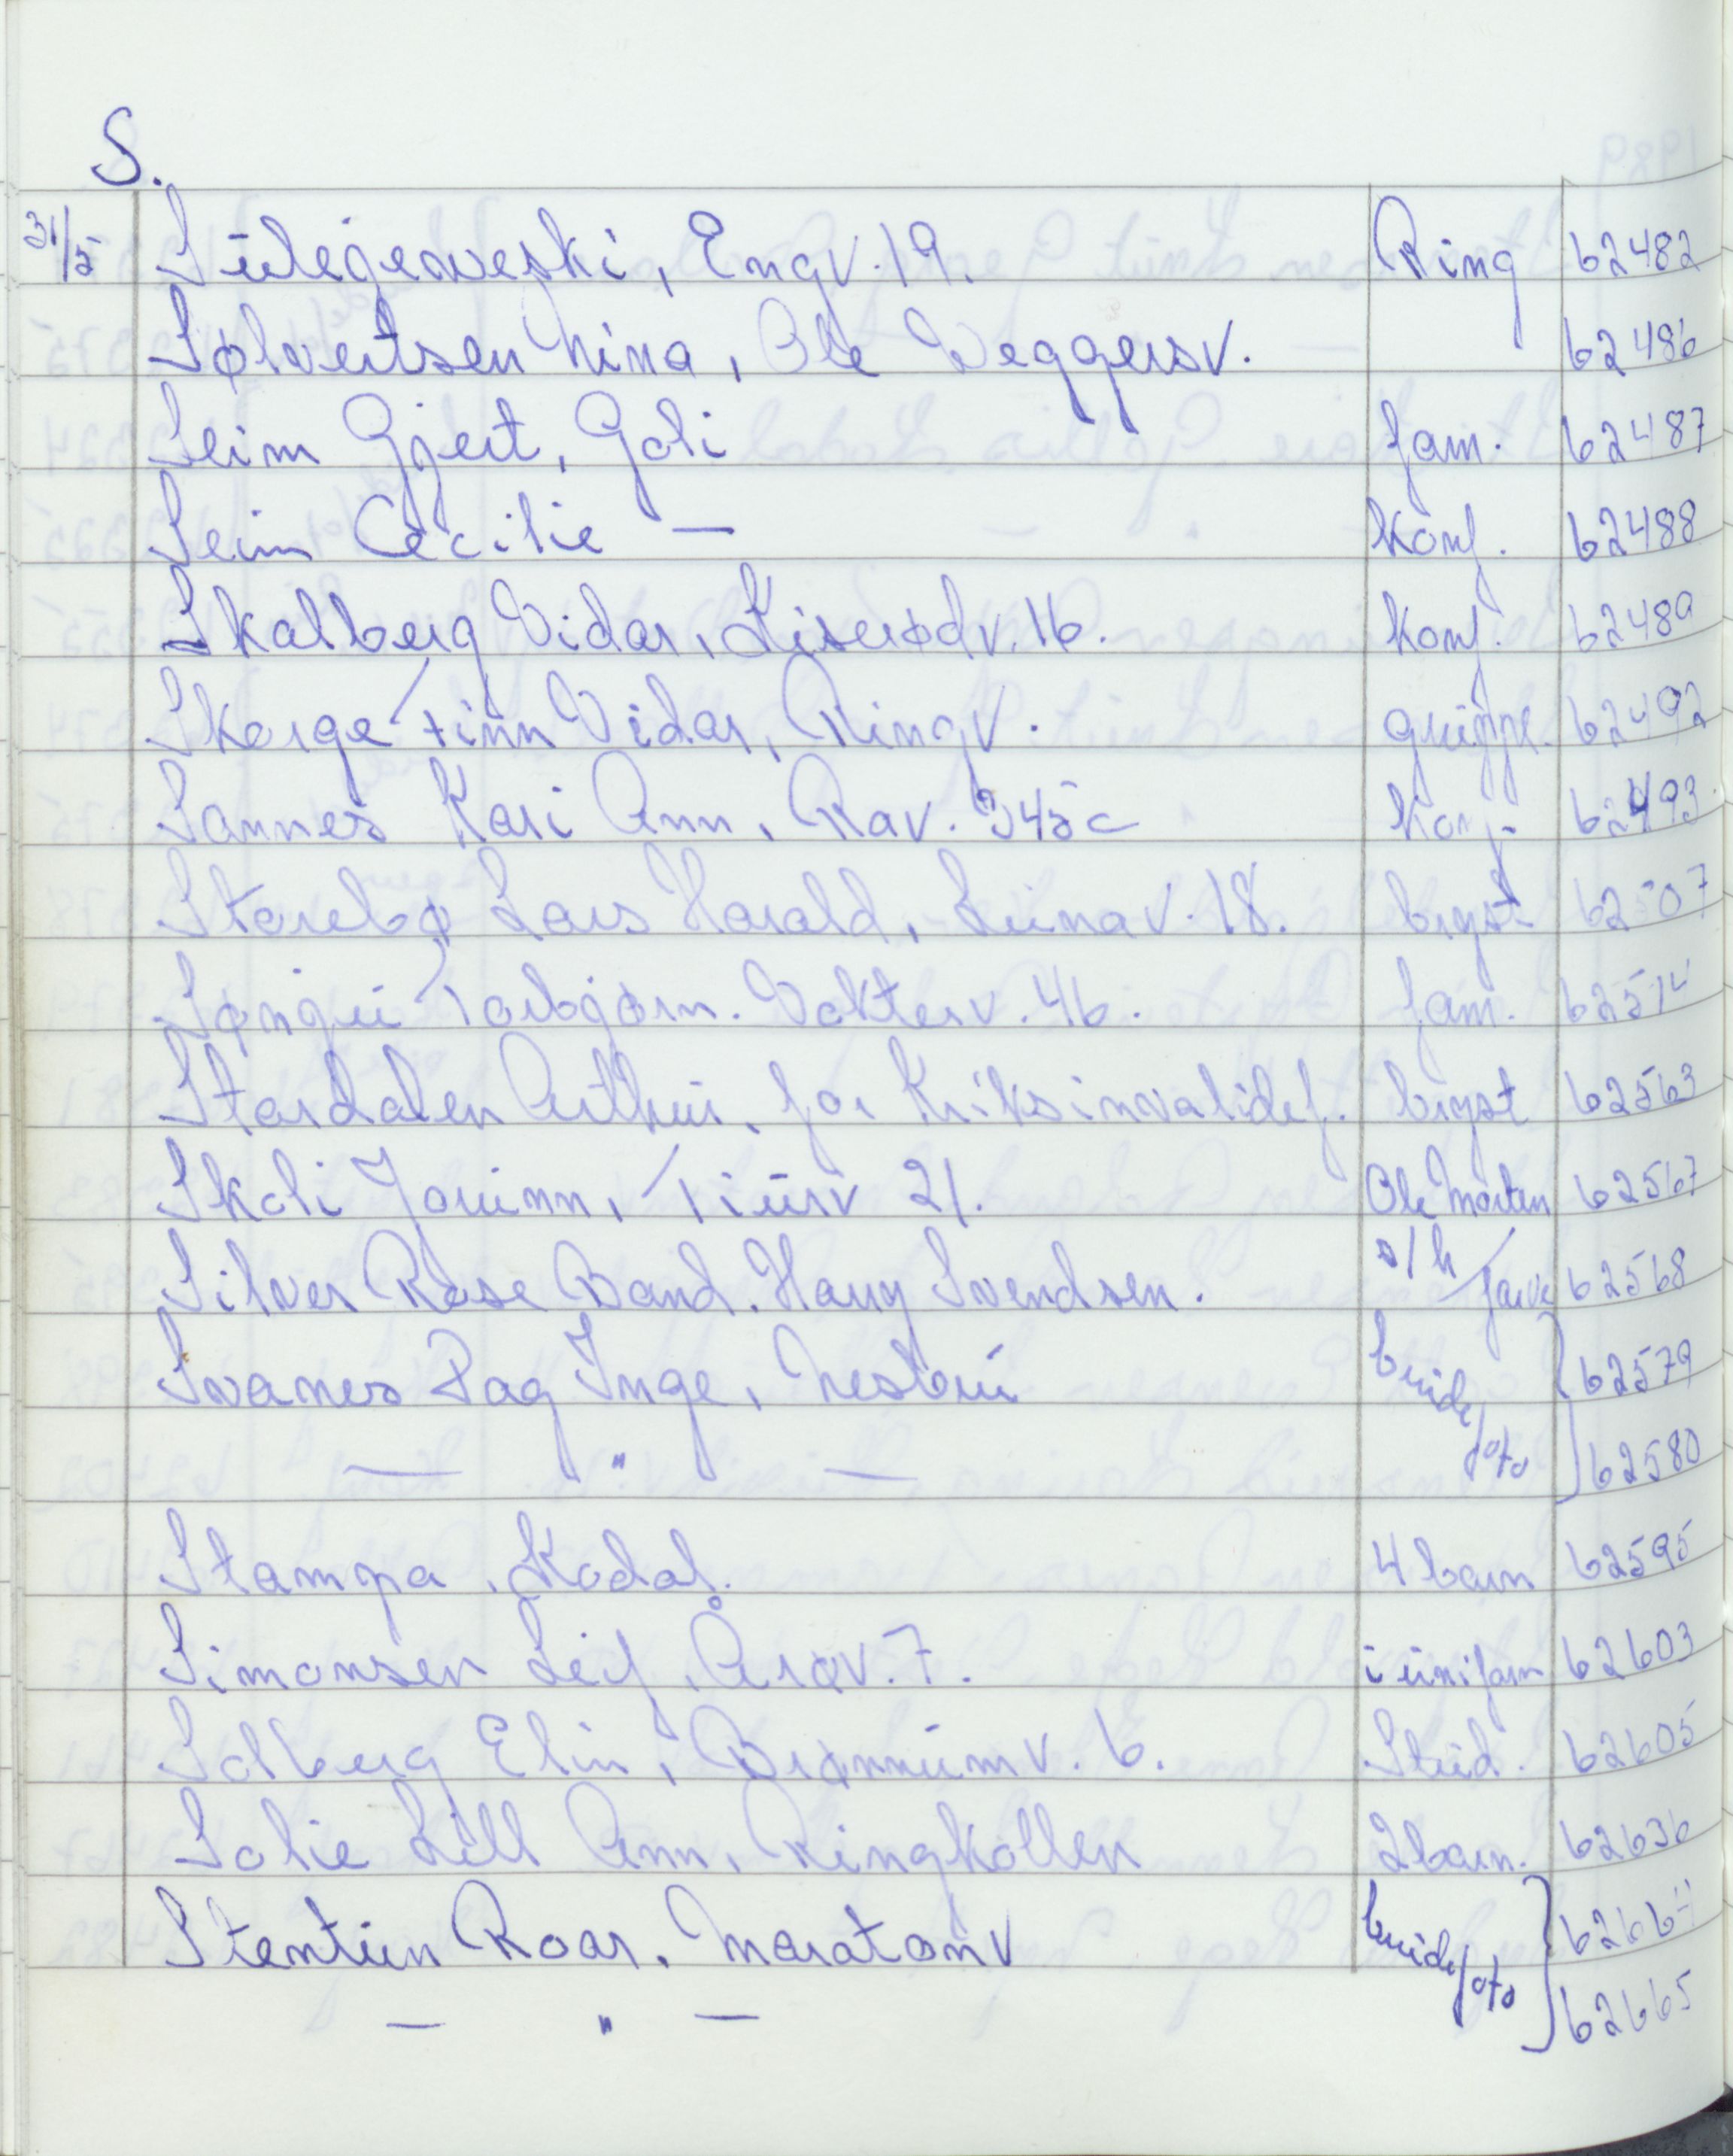 S.
31/5 Sulejeweski, Engv. 19. Ring 62482
Sølvertsen Nina, Ole Weggersv. 62486
Seim Gjert, Goli fam. 62487
Seim Cecilie — Konf. 62488
Skalberg Vidar, Liserødv. 16. Konf. 62489
Skorge Finn Vidar, Ringv. gruppe. 62492
Sannes Kari Ann, Rav. 345c Konf. 62493
Storebø Lars Harald, Lunav. 18. bryst 62507
Søngui Torbjørn. Vokterv. 46. fam. 62514
Stordalen Arthur, for Kriksinvalidef. bryst 62563
Skoli Jorunn, Tiurv 21. Ole Morten 62567
Silver Rose Band. Harry Svendsen. s/h/farve 62568
Svanes Dag Inge, Nesbru brudefoto 62579
— " — 62580
Stampa, Kodal. 4 barn 62595
Simonsen Leif, Årøv. 7. i uniform 62603
Solberg Elin, Brønnumv. 6. Stud. 62605
Solie Lill Ann, Ringkollen 2 barn. 62636
Stentun Roar, Maratonv brudefoto 62664
— " — 62665